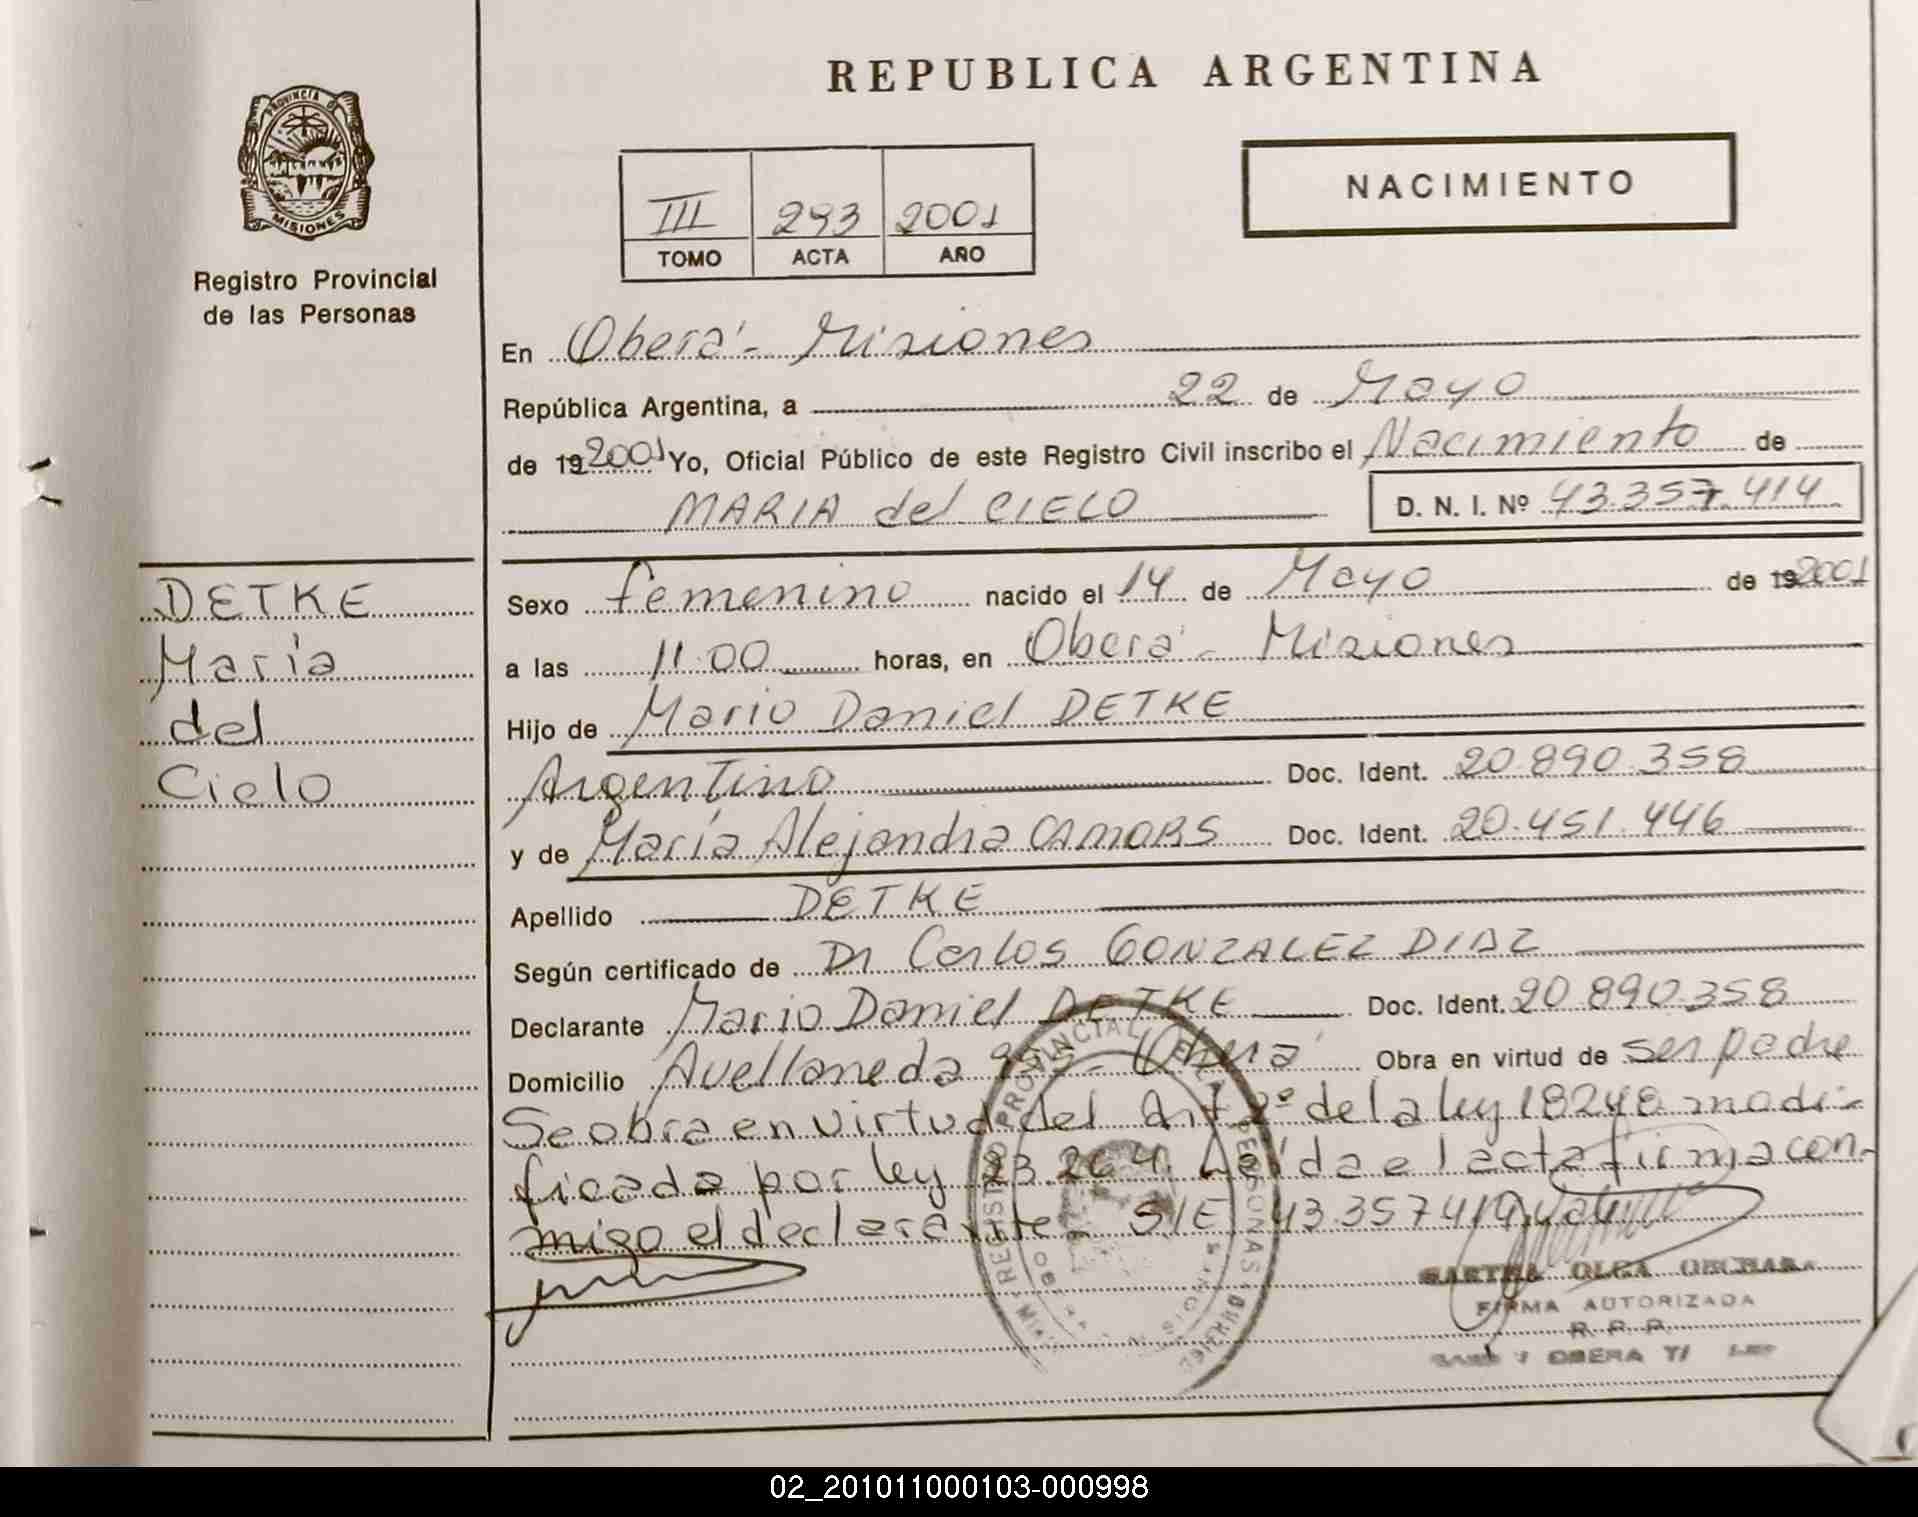 REPUBLICA ARGENTINA
PROVINCIA D
MISIONES
Registro Provincial
de las Personas
NACIMIENTO
III 293 2001
TOMO ACTA AÑO
En Oberá - Misiones
República Argentina, a 22 de Mayo
de 19 2001 Yo, Oficial Público de este Registro Civil inscribo el Nacimiento de
MARIA del CIELO D. N. I. Nº 43.357.414
DETKE
María
del
Cielo
Sexo femenino nacido el 14 de Mayo de 19 2001
a las 11:00 horas, en Oberá - Misiones
Hijo de Mario Daniel DETKE
Argentino Doc. Ident. 20.890.358
y de María Alejandra CAMORS Doc. Ident. 20.451.446
Apellido DETKE
Según certificado de Dr Carlos GONZALEZ DIAZ
Declarante Mario Daniel DETKE Doc. Ident. 20.890.358
Domicilio Avellaneda - Oberá Obra en virtud de ser padre
Se obra en virtud del Art 2º de la ley 18248 modi-
ficada por ley 23.264. Leída el acta firma con-
migo el declarante. S/E 43.357.414.
REGISTRO PROVINCIAL DE LAS PERSONAS
OLGA
FIRMA AUTORIZADA
R. P. P.
OBERA
02_201011000103-000998